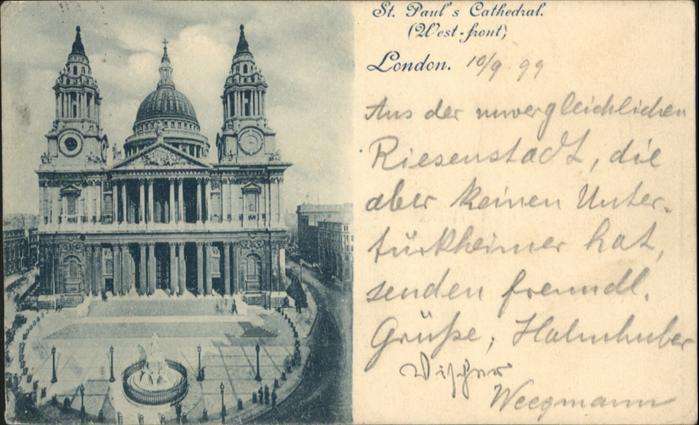 St. Paul's Cathedral.
(West-front)
London. 10/9 99
Aus der unvergleichlichen
Riesenstadt, die
aber keinen Unter-
türkheimer hat,
senden freundl.
Grüße, Halmhuber
Wischer
Weegmann